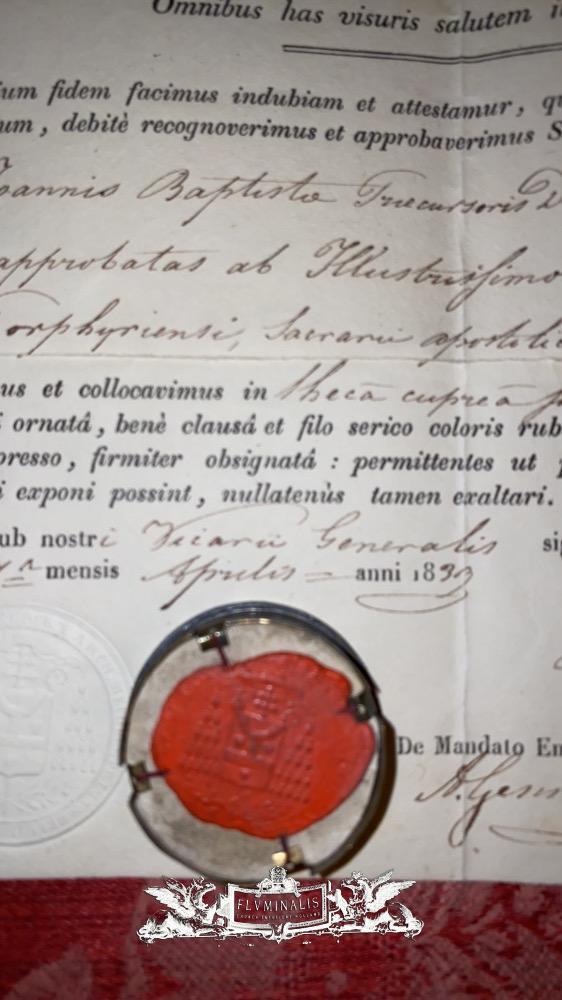 Omnibus has visuris salutem i
ium fidem facimus indubiam et attestamur, q
um, debitè recognoverimus et approbaverimus S
oannis Baptistæ Præcursoris D
approbatas ab Illustrissimo
orphyriensi, Sacrarii apostoli
us et collocavimus in thecâ cupreâ
i ornatâ, benè clausâ et filo serico coloris rub
presso, firmiter obsignatâ : permittentes ut
i exponi possint, nullatenùs tamen exaltari.
ub nostri Vicarii Generalis sig
mensis Aprilis anni 1833
De Mandato Em
FLVMINALIS